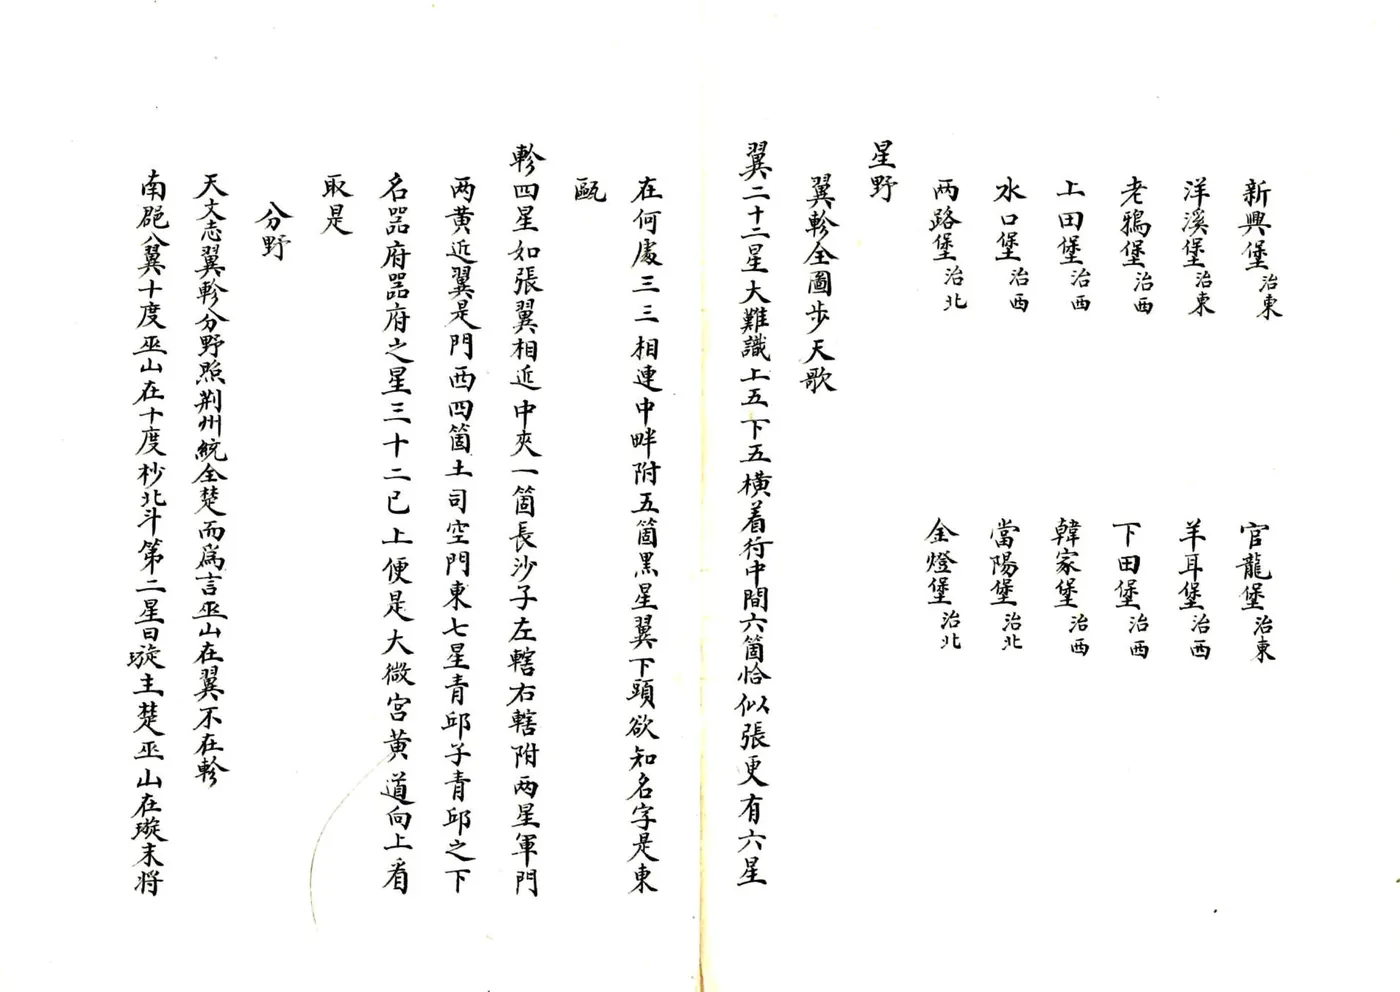 新興堡治東 官龍堡治東
洋溪堡治東 羊耳堡治西
老鴉堡治西 下田堡治西
上田堡治西 韓家堡治西
水口堡治西 當陽堡治北
两路堡治北 金燈堡治北
星野
翼軫全圖步天歌
翼二十二星大難識上五下五橫着行中間六箇恰似張更有六星
在何處三三相連中畔附五箇黑星翼下頭欲知名字是東
甌
軫四星如張翼相近中夾一箇長沙子左轄右轄附两星軍門
两黄近翼是門西四箇土司空門東七星青邱子青邱之下
名噐府噐府之星三十二已上便是大微宫黄道向上看
取是
分野
天文志翼軫分野照荆州統全楚而爲言巫山在翼不在軫
南郡八翼十度巫山在十度杪北斗第二星曰璇主楚巫山在璇末将